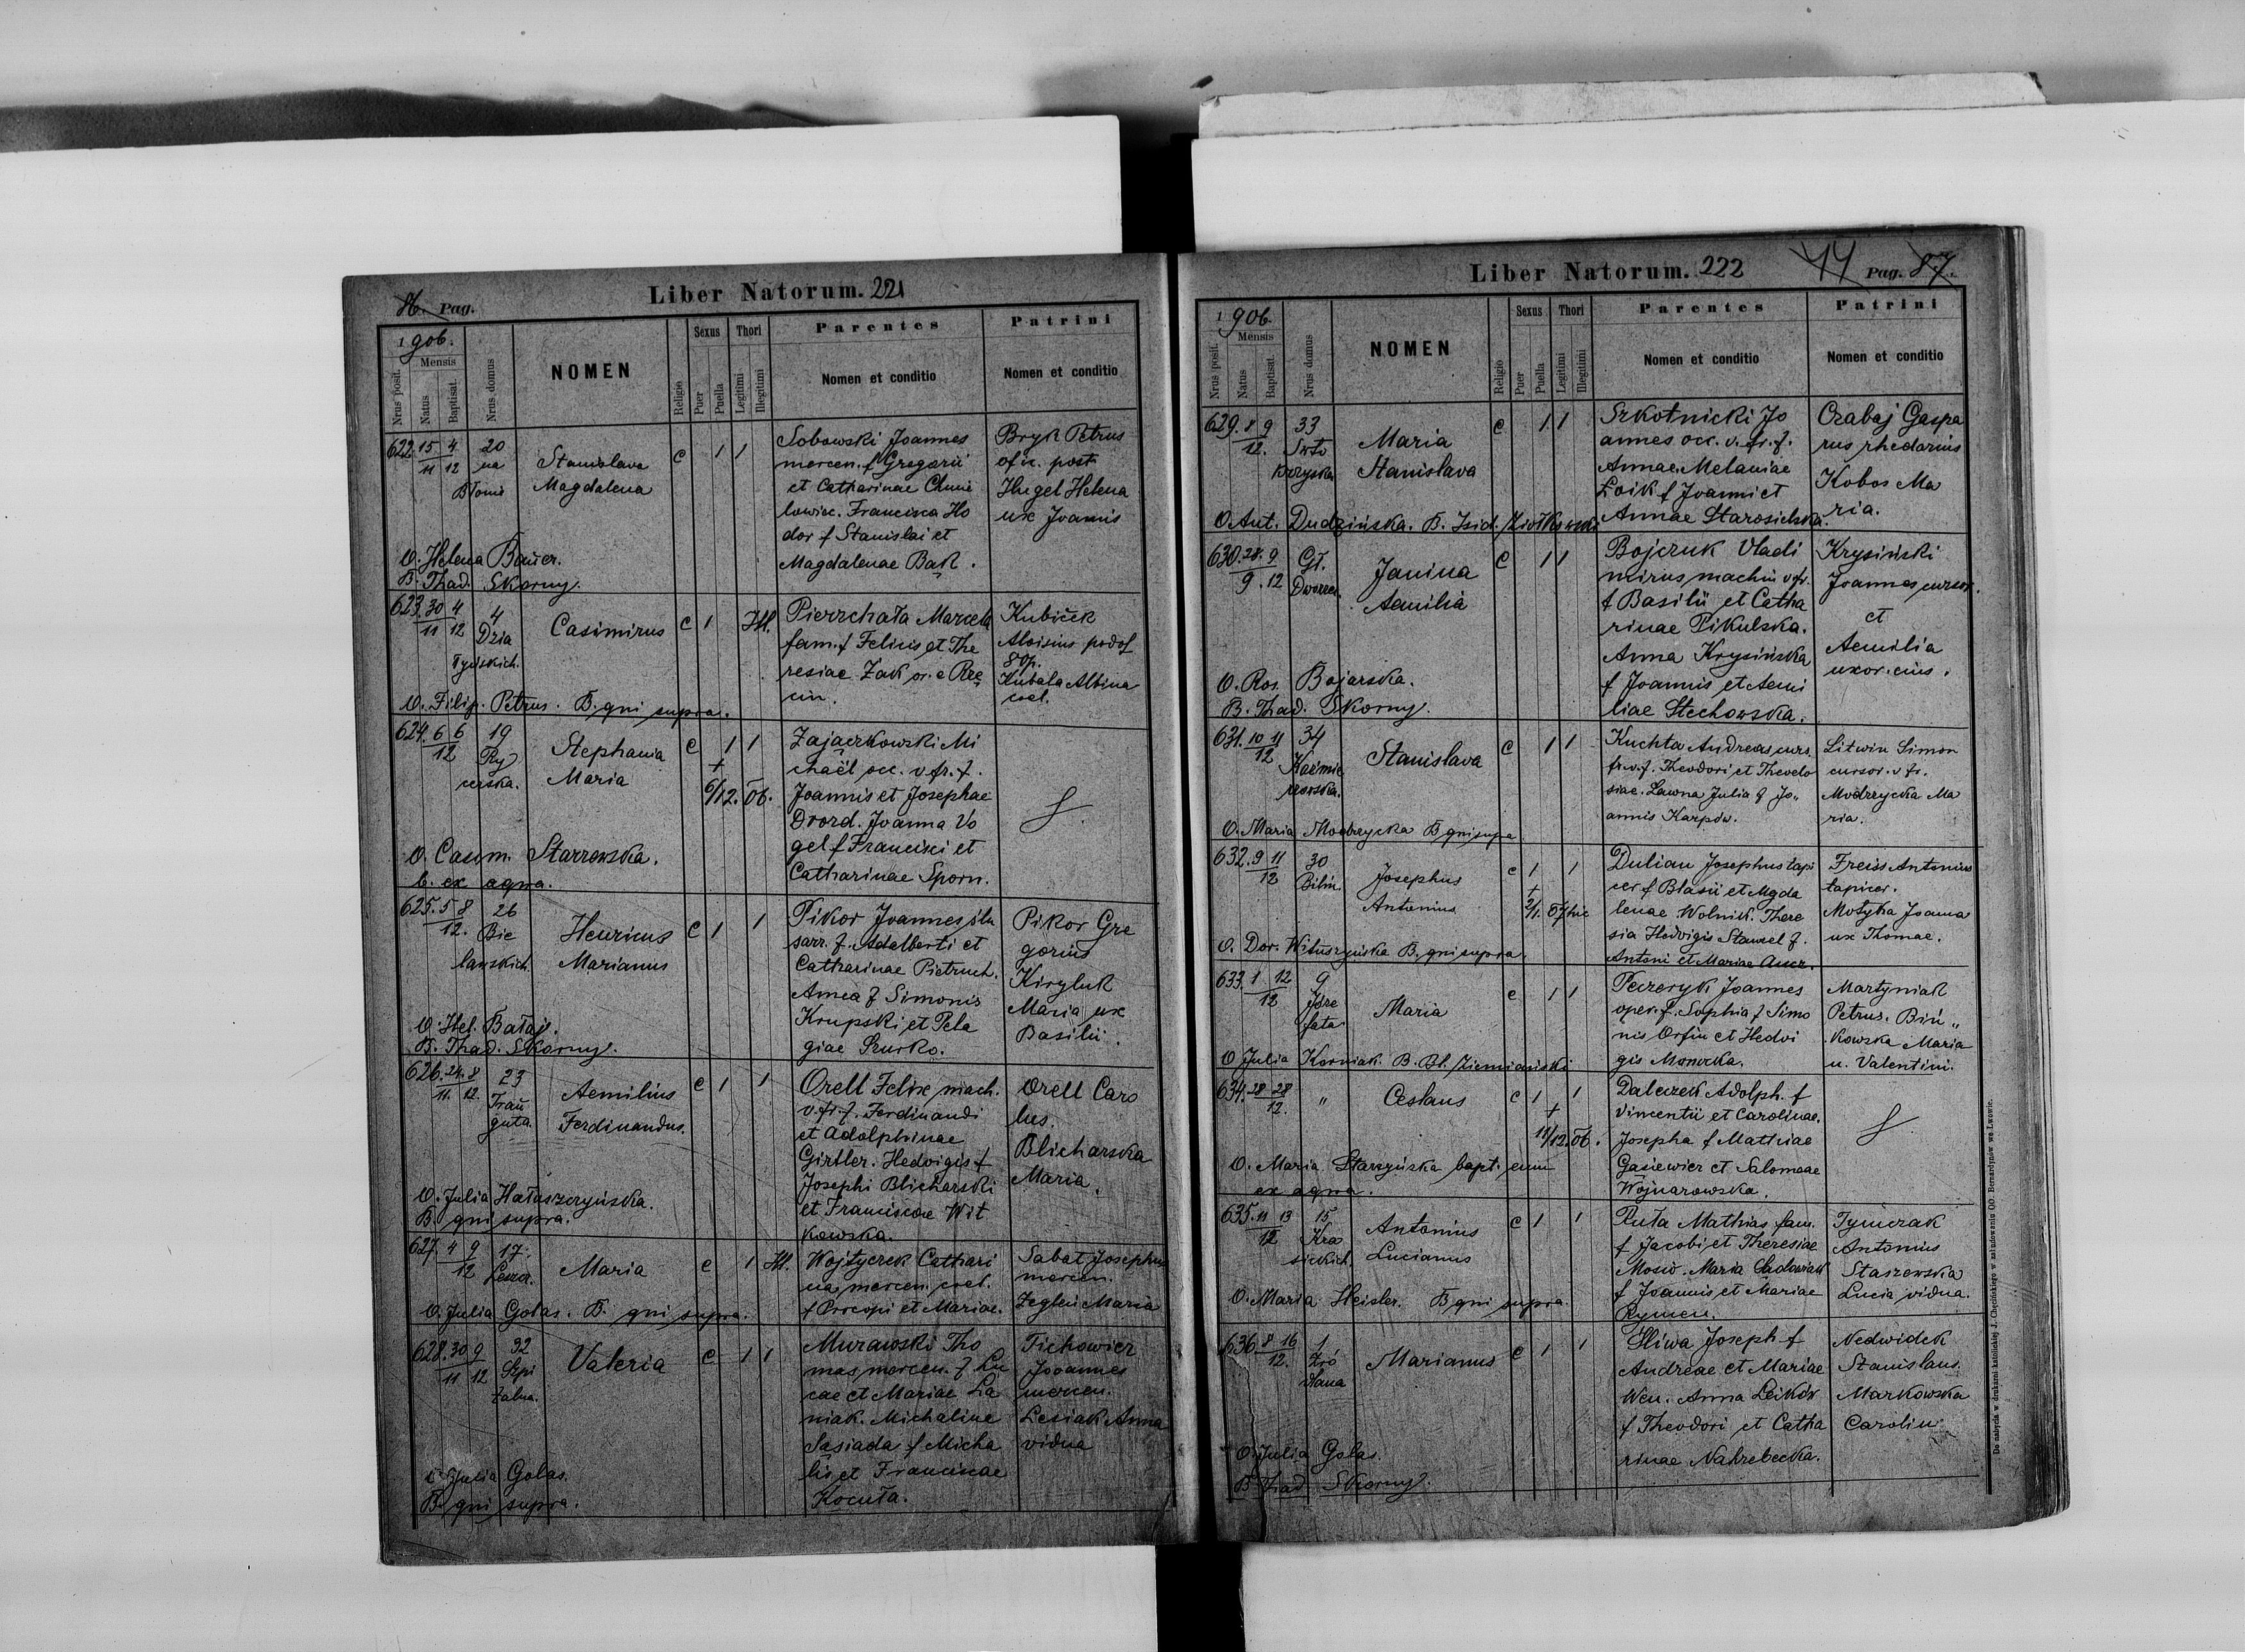 86. Pag.
Liber Natorum. 221
1906.
Nrus posit.
Mensis
Natus
Baptisat.
Nrus domus
NOMEN
Religio
Sexus
Puer
Puella
Thori
Legitimi
Illegitimi
Parentes
Nomen et conditio
Patrini
Nomen et conditio
622. 15/11 4/12
20
na
Błonie
Stanislava
Magdalena
C 1 1
Sobowski Joannes
mercen. f Gregorii
et Catharinae Chmie
lowiec. Francisca Ho
dor f Stanislai et
Magdalenae Bąk.
Bryk Petrus
ofic. post
Hugel Helena
ux Joannis
O. Helena Bauer.
B. Thad. Skorny.
623. 30/11 4/12
4
Dzia
łyńskich.
Casimirus
C 1 Ill.
Pierzchała Marcela
fam. f Felicis et The
resiae Żak or. e Rze
Kubiček
Aloisius podof
80p.
Kubala Albina
coel.
O. Filip. Petrus. B. qui supra.
624. 6 6/12
19
Ry
cerska.
Stephania
Maria
C 1 1
+
6/12. 06.
Zajączkowski Mi
chaël occ. v. fr. f.
Joannis et Josephae
Drozd. Joanna Vo
gel f Francisci et
Catharinae Sporn.
O. Casim. Starzewska.
b. ex aqua.
625. 5 8/12.
26
Bie
lawskich
Henricus
Marianus
C 1 1
Pikor Joannes ślu
sarz. f. Adalberti et
Catharinae Pietruch.
Anna f Simonis
Krupski et Pela
giae Szurko.
Pikor Gre
gorius
Kiryluk
Maria ux
Basilii.
O. Hel. Bataje.
B. Thad. Skorny.
626. 24/11. 8/12.
23
Trau
guta.
Aemilius
Ferdinandus.
C 1 1
Orell Felix mach.
v. fr. f. Ferdinandi
et Adolphinae
Girtler. Hedvigis f
Josephi Blicharski
et Franciscae Wit
kowska.
Orell Caro
lus.
Blicharska
Maria.
O. Julia Hałaszczyńska.
B. qui supra.
627. 4 9/12
17.
Maria
C 1 Ill.
Wojtyczek Cathari
na mercen. coel.
f Procopi et Mariae.
Sabat Josephus
mercen.
Żegleń Maria
O. Julia Golas. B. qui supra.
628. 30/11 9/12
32
Szpi
talna.
Valeria
C 1 1
Murawski Tho
mas mercen. f Lu
cae et Mariae Ła
niak. Michalina
Sasiada f Micha
lis et Franciscae
Kocuła.
Tichowicz
Jooannes
mercen.
Lesiak Anna
vidua
O. Julia Golas.
B. qui supra.
Liber Natorum. 222
44
Pag. 87.
1906.
Nrus posit.
Mensis
Natus
Baptisat.
Nrus domus
NOMEN
Religio
Sexus
Puer
Puella
Thori
Legitimi
Illegitimi
Parentes
Nomen et conditio
Patrini
Nomen et conditio
629. 8 9/12.
33
Śwto
krzyska
Maria
Stanislava
C 1 1
Szkotnicki Jo
annes occ. v. fr. f.
Annae. Melaniae
Łoik f Joanni et
Annae Starosielska.
Czabaj Gaspa
rus rhedarius
Kobos Ma
ria.
O. Ant. Dudzińska. B. Isid. Ziółkowski
630. 28/9. 9/12
Gł.
Dworzec.
Janina
Aemilia
C 1 1
Bojczuk Vladi
mirus machin v. fr.
f Basilii et Catha
rinae Pikulska.
Anna Krysińska
f Joannis et Aemi
liae Stechowska.
Krysiński
Joannes cursor.
et
Aemilia
uxor. eius.
O. Ros. Bojarska.
B. Thad. Skorny.
631. 10 11/12
34
Kaźmie
rzowska.
Stanislava
C 1 1
Kuchta Andreas curs.
fr. v. f. Theodori et Theodo
siae. Ławna Julia f Jo„
annis Karpów.
Litwin Simon
cursor. v fr.
Modrzycka Ma
ria.
O. Maria Modrzycka B qui supra
632. 9 11/12
30
Bilin.
Josephus
Antonius
C 1 1
+
2/1. 07 hic
Dulian Josephus tapi
cer f Blasii et Magda
lenae Wolnik. There
sia Hedvigis Stanzel f.
Antoni et Mariae Aucz.
Freiss Antonius
tapicer.
Motyka Joanna
ux Thomae.
O. Dor. Wituszyńska B. qui supra.
633. 1 12/12
9
Józe
fata
Maria
C 1 1
Peczeryk Joannes
oper. f. Sophia f Simo
nis Orfin et Hedvi
gis
Martyniak
Petrus. Biń„
kowska Maria
u. Valentini.
O Julia Korniak. B. Bł. Ziemiański
634. 28 28/12.
„
Ceslaus
C 1 1
+
11/12. 06.
Daleczek Adolph. f
Vincentii et Carolinae.
Josepha f Mathiae
Gasiewicz et Salomeae
Wojnarowska.
O. Maria Starzyńska bapt. eum
ex aqua.
635. 11 13/12
15
Kra
sickich
Antonius
Lucianus
C 1 1
Ruta Mathias fam.
f Jacobi et Theresiae
Mosio. Maria Sadowiak
f Joannis et Mariae
Rymen.
Tymczak
Antonius
Staszewska
Lucia vidua.
O. Maria Heisler. B qui supra.
636. 8 16/12.
1
Źró
dlana
Marianus
C 1 1
Śliwa Joseph f
Andreae et Mariae
Wen. Anna Leików
f Theodori et Catha
rinae Nahrebecka.
Nedwidek
Stanislaus.
Markowska
Carolin.
O. Julia Golas.
B Thad Skorny.
Do nabycia w drukarni katolickiej J. Chęcińskiego w zabudowaniu OO. Bernardynów we Lwowie.